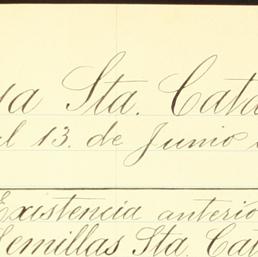 ya Sta. Cata
al 13. de Junio
Existencia anterio
Semillas Sta. Cat